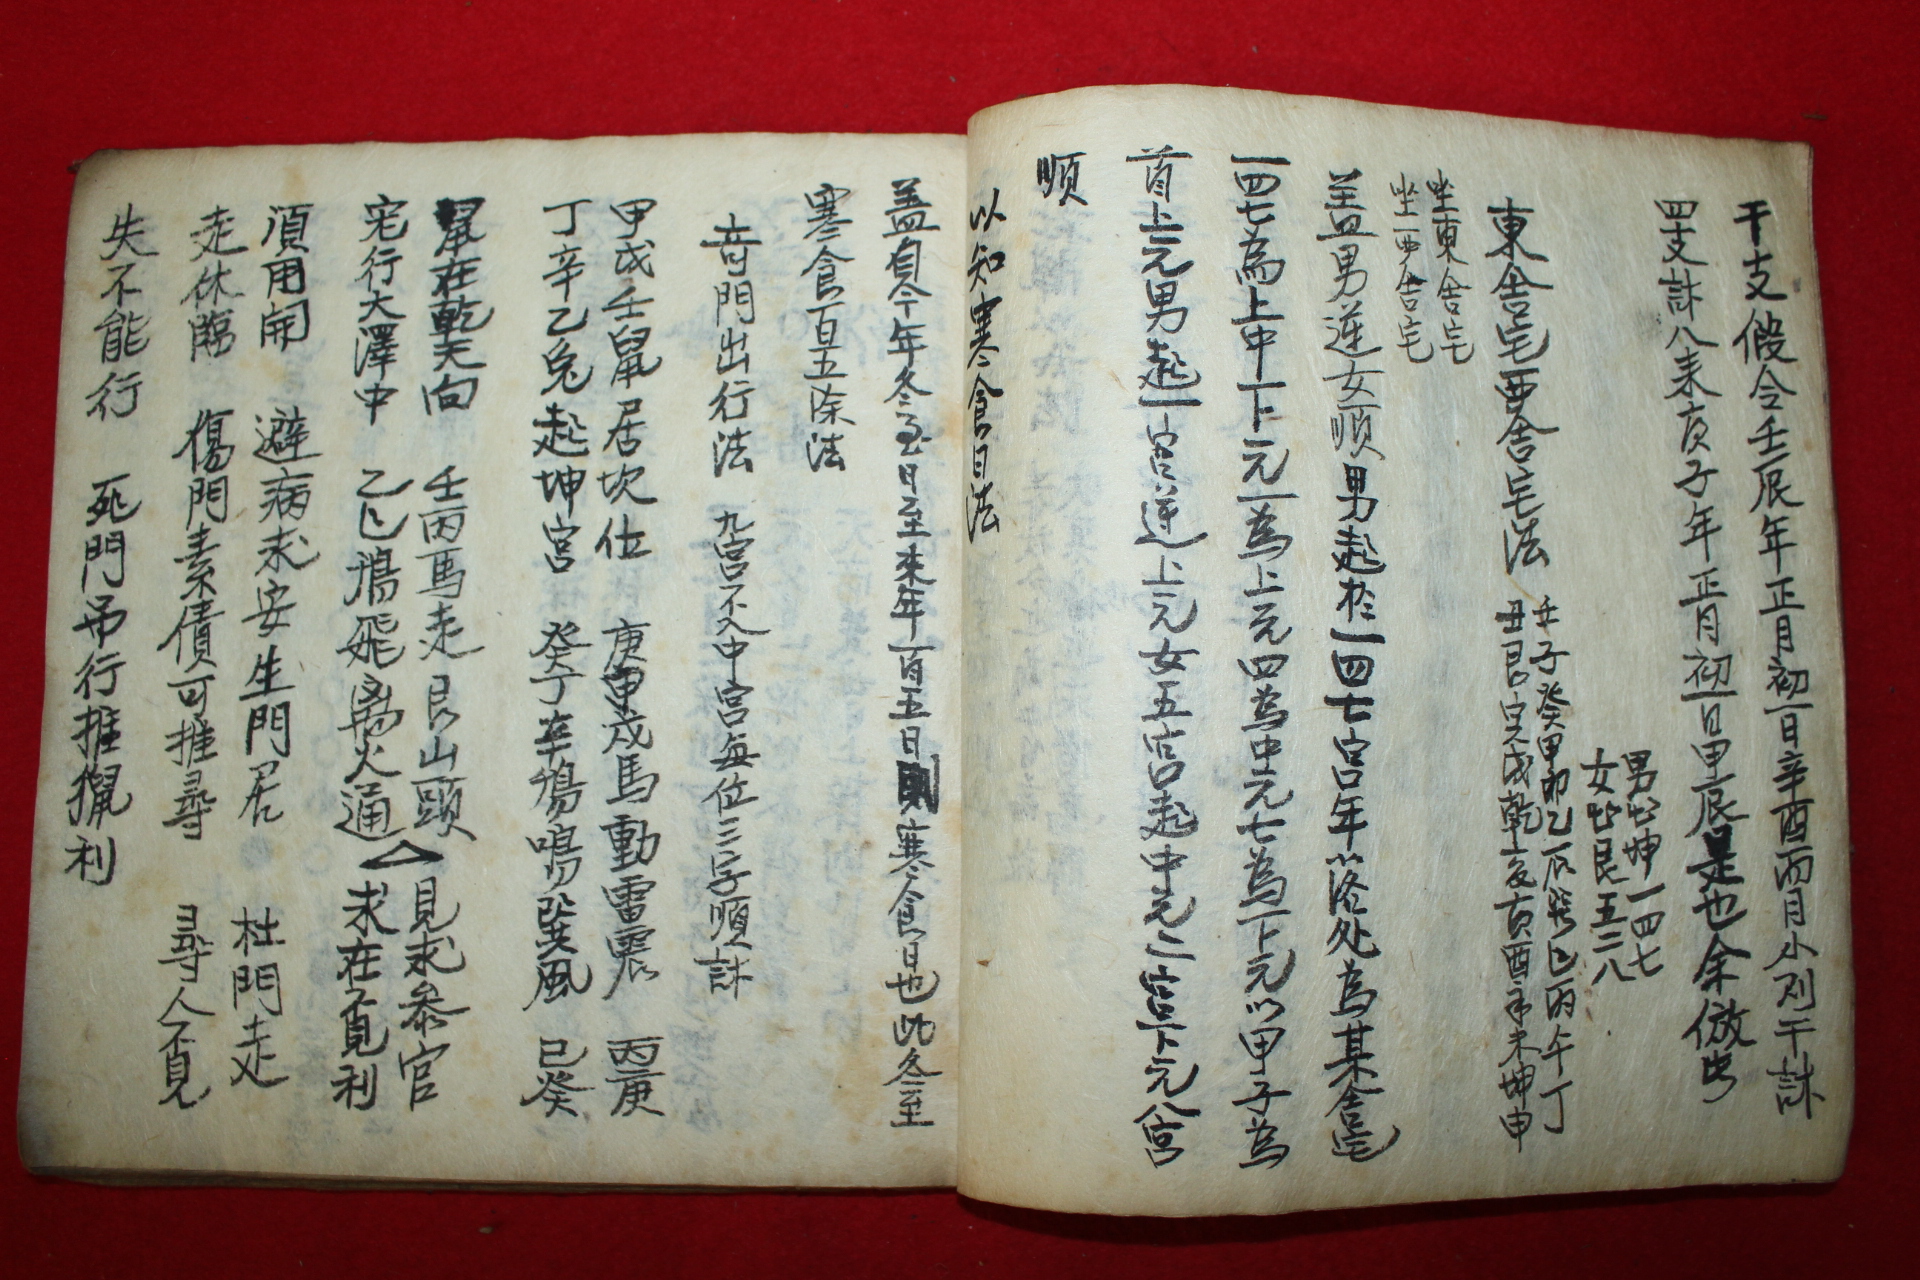 干支 假令壬辰年正月初一日辛酉而月小則干計
四支計八來亥子年正月初一日甲辰是也余倣此
男卄坤一四七
女卄艮五二八
東舍宅西舍宅法 壬子癸甲卯乙辰巽巳丙午丁
丑艮寅戌乾亥酉辛未坤申
坐東舍宅
坐西舍宅
盖男逆女順男起於一四七宮年以落处為某舍宅
一四七為上中下元一為上元四為中元七為下元以甲子為
首上元男起一宮逆上元女五宮起中元二宮下元八宮
順
以知寒食日法
盖自今年冬至日至來年一百五日則寒食日也此冬至
寒食百五除法
奇門出行法 九宮不入中宮每位三字順計
甲戊壬鼠居坎位 庚甲戊馬動雷震 丙庚
丁辛乙兔起坤宮 癸丁辛鴉鳴巽風 己癸
鼠在乾天向 壬丙馬走艮山頭 見求參官
宅行大澤中 乙己鴉飛火通 求在不見利
須用開 避病求安生門居 杜門走
走休臨 傷門素債可推尋 尋人不見
失不能行 死門吊行推獵利